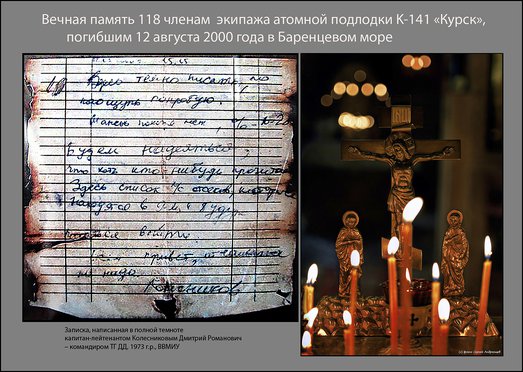 Вечная память 118 членам экипажа атомной подлодки К-141 «Курск»,
погибшим 12 августа 2000 года в Баренцевом море
15.15
Здесь темно писать, но
наощупь попробую.
Шансов похоже нет, % 10-20
Будем надеяться,
что хоть кто нибудь прочитает
Здесь список л/с отсеков, которые
находятся в 9-м и будут
выйти.
привет, отчаиваться
не надо.
Колесников
Записка, написанная в полной темноте
капитан-лейтенантом Колесниковым Дмитрий Романович
– командиром ТГ ДД, 1973 г.р., ВВМИУ